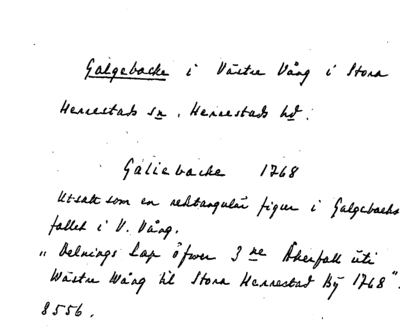 Galgebacke i Västre Vång i Stora
Herrestads sn, Herrestads hd.
Galiebacke 1768
Utsatt som en rektangulär figur i Galgebacks
fallet i V. Vång.
"Delnings Cap öfwer 3 ne Åkerfall uti
Wästre Wång til Stora Herrestad By 1768".
8556.